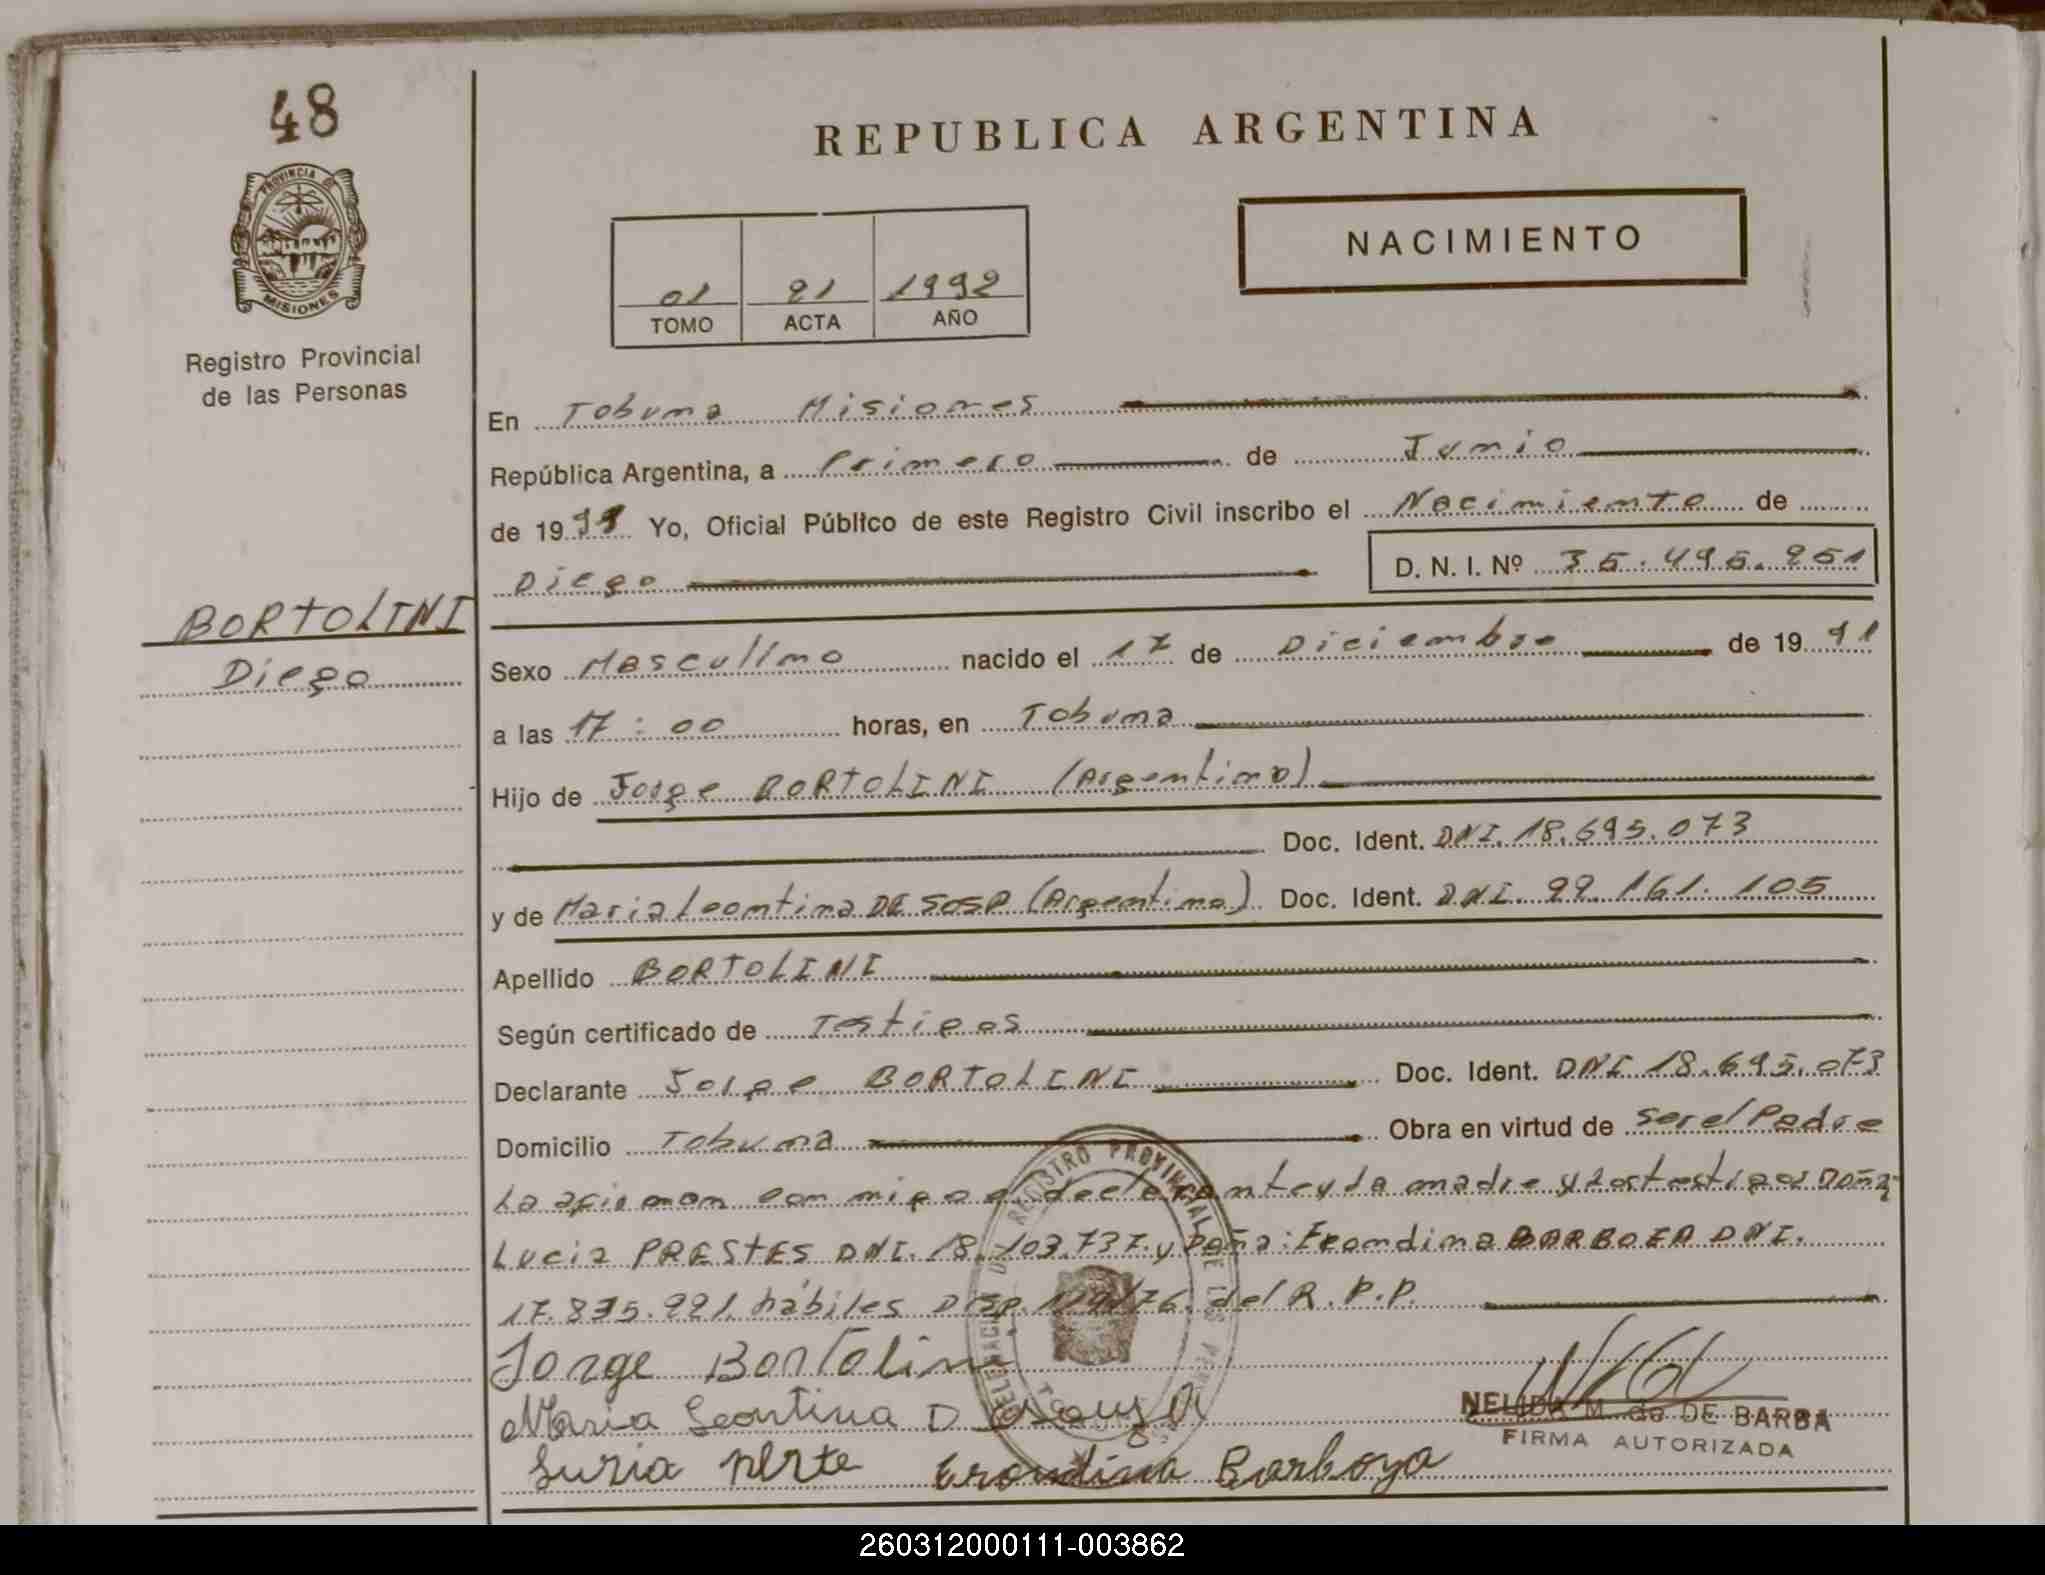 48
REPUBLICA ARGENTINA
PROVINCIA DE
MISIONES
Registro Provincial
de las Personas
01 21 1992
TOMO ACTA AÑO
NACIMIENTO
En Tobuna Misiones
República Argentina, a Primero de Junio
de 19 Yo, Oficial Público de este Registro Civil inscribo el Nacimiento de
Diego D. N. I. Nº 35.495.251
BORTOLINI
Diego
Sexo Masculino nacido el 17 de Diciembre de 19 91
a las 17:00 horas, en Tobuna
Hijo de Jorge BORTOLINI (Argentino)
Doc. Ident. DNI. 18.695.073
y de Maria Leontina DE SOSA (Argentina) Doc. Ident. DNI. 22.161.105
Apellido BORTOLINI
Según certificado de Testigos
Declarante Jorge BORTOLINI Doc. Ident. DNI 18.695.073
Domicilio Tobuna Obra en virtud de ser el Padre
La afirman conmigo el declarante y la madre y los testigos Doña
Lucia PRESTES DNI. 18.103.737. y Doña: Erondina BARBOZA DNI.
17.835.221. hábiles Disp. del R.P.P.
Jorge Bortolini
Maria Leontina D
Luria Perte Erondina Barboza
NELIDA M. de DE BARBA
FIRMA AUTORIZADA
REGISTRO PROVINCIAL DE LAS
260312000111-003862